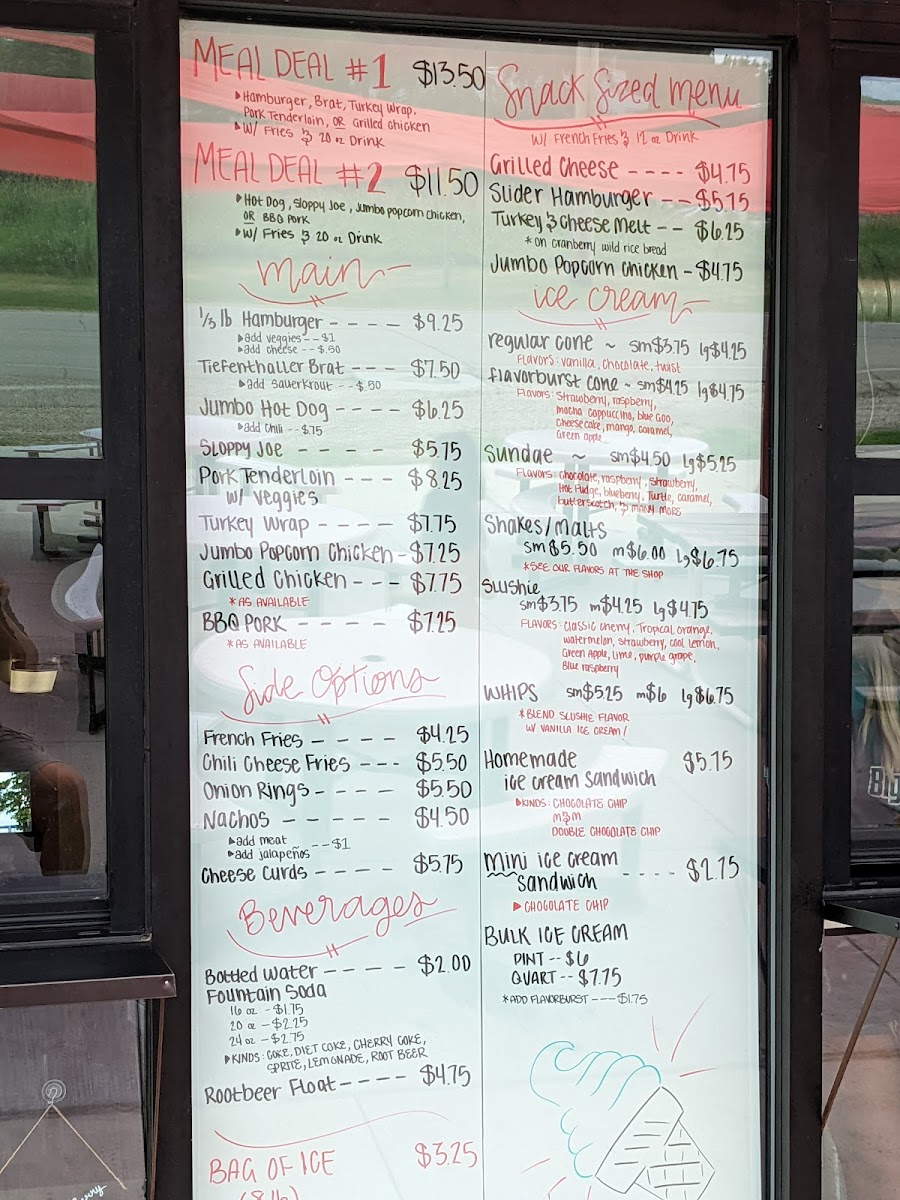 MEAL DEAL #1 $13.50
▸Hamburger, Brat, Turkey Wrap,
Pork Tenderloin, OR Grilled chicken
▸W/ Fries & 20 oz Drink
MEAL DEAL #2 $11.50
▸Hot Dog, Sloppy Joe, Jumbo popcorn chicken,
OR BBQ Pork
▸W/ Fries & 20 oz Drink
main
1/3 lb Hamburger - - - - $9.25
▸add veggies--$1
▸add cheese --$.50
Tiefenthaller Brat --- $7.50
▸add Sauerkrout --$.50
Jumbo Hot Dog ---- $6.25
▸add chili --$.75
Sloppy Joe - - - - - $5.75
Pork Tenderloin --- $8.25
w/ veggies
Turkey Wrap ---- $7.75
Jumbo Popcorn Chicken - $7.25
Grilled Chicken --- $7.75
*AS AVAILABLE
BBQ PORK ---- $7.25
*AS AVAILABLE
Side Options
French Fries - - - - $4.25
Chili Cheese Fries --- $5.50
Onion Rings ---- $5.50
Nachos - - - - - $4.50
▸add meat
▸add jalapeños --$1
Cheese Curds ---- $5.75
Beverages
Bottled Water ---- $2.00
Fountain Soda
16 oz -$1.75
20 oz -$2.25
24 oz -$2.75
▸KINDS: COKE, DIET COKE, CHERRY COKE,
SPRITE, LEMONADE, ROOT BEER
Rootbeer Float ---- $4.75
BAG OF ICE $3.25
(8 lb)
Snack Sized Menu
W/ French Fries & 12 oz Drink
Grilled Cheese ---- $4.75
Slider Hamburger -- $5.75
Turkey & Cheese Melt -- $6.25
*on cranberry wild rice bread
Jumbo Popcorn Chicken - $4.75
ice cream
regular cone ~ sm$3.75 lg$4.25
FLAVORS: vanilla, chocolate, twist
flavorburst cone ~ sm$4.25 lg$4.75
FLAVORS: strawberry, raspberry,
mocha cappuccino, blue Goo,
cheesecake, mango, caramel,
Green apple
Sundae ~ sm$4.50 Lg$5.25
FLAVORS: chocolate, raspberry, strawberry,
Hot Fudge, blueberry, Turtle, caramel,
butterscotch, & many MORE
Shakes/Malts
sm$5.50 m$6.00 Lg$6.75
*SEE OUR FLAVORS AT THE SHOP
Slushie
sm$3.75 m$4.25 lg$4.75
FLAVORS: Classic Cherry, Tropical orange,
watermelon, strawberry, cool Lemon,
Green Apple, Lime, purple grape,
Blue raspberry
WHIPS sm$5.25 m$6 lg$6.75
*BLEND SLUSHIE FLAVOR
W/ VANILLA ICE CREAM!
Homemade $5.75
ice cream sandwich
▸KINDS: CHOCOLATE CHIP
M&M
DOUBLE CHOCOLATE CHIP
Mini ice cream
Sandwich ---- $2.75
▸CHOCOLATE CHIP
BULK ICE CREAM
PINT -- $6
QUART -- $7.75
*ADD FLAVORBURST ---$1.75